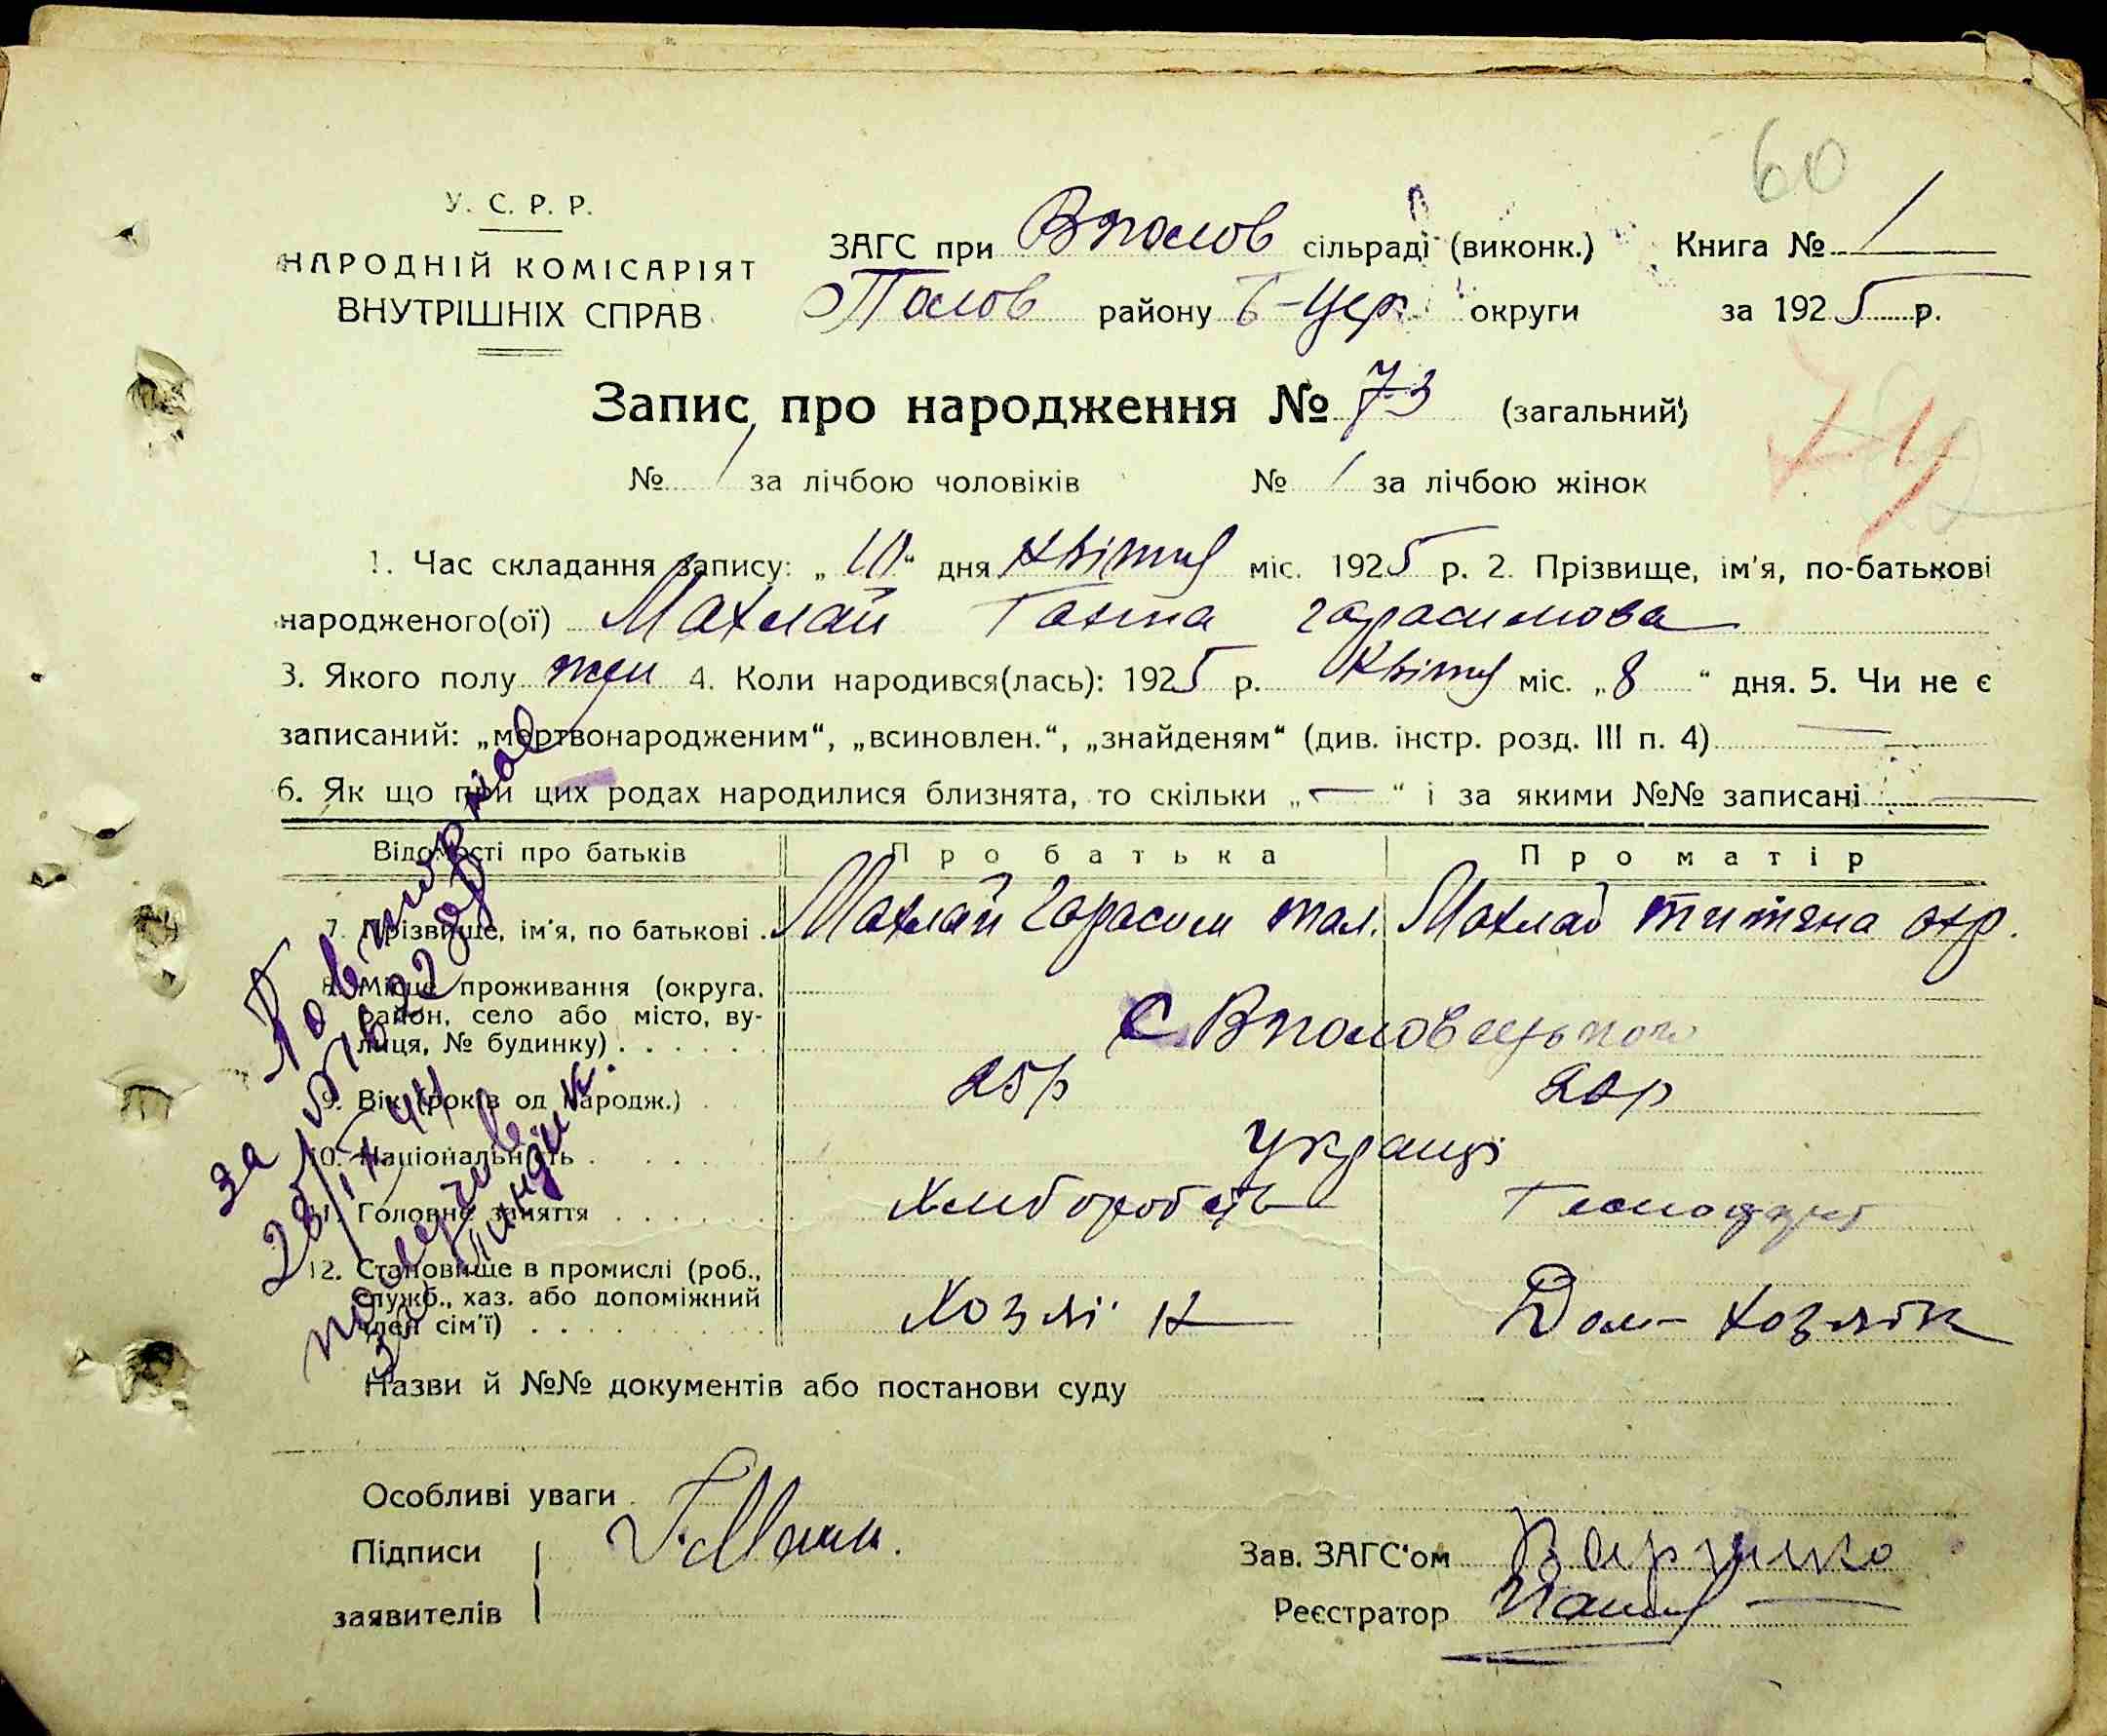 60
У. С. Р. Р.
НАРОДНІЙ КОМІСАРІЯТ
ВНУТРІШНІХ СПРАВ
ЗАГС при Вполов сільраді (виконк.) Книга № 1
Полов району Б-Цер. округи за 1925 р.
Запис про народження № 73 (загальний)
№ / за лічбою чоловіків № / за лічбою жінок
1. Час складання запису: „10“ дня Квітня міс. 1925 р. 2. Прізвище, ім'я, по-батькові
народженого(ої) Махлай Ганна Гарасимова
3. Якого полу жен 4. Коли народився(лась): 1925 р. Квітня міс. „8“ дня. 5. Чи не є
записаний: „мертвонародженим“, „всиновлен.“, „знайденям“ (див. інстр. розд. III п. 4) —
6. Як що при цих родах народилися близнята, то скільки „—“ і за якими №№ записані —
Відомості про батьків Про батька Про матір
7. Прізвище, ім'я, по батькові . Махлай Гарасим Махлай Титяна
8. Місце проживання (округа,
район, село або місто, ву-
лиця, № будинку) . . . . . . с Вполовецького
9. Вік (років од народж.) . . 25р
10. Національність . . . . . Українці
11. Головне заняття . . . . . . Хліборобств
12. Становище в промислі (роб.,
служб., хаз. або допоміжний
член сім'ї) . . . . . . . . . Хозяїн Дом-Хозяйк
Повторне
за № 1622
28/IX 44
Назви й №№ документів або постанови суду
Особливі уваги
Підписи
заявителів
Зав. ЗАГС'ом
Реєстратор